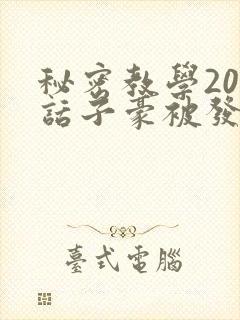 秘密教學20
話子豪被發
臺式電腦